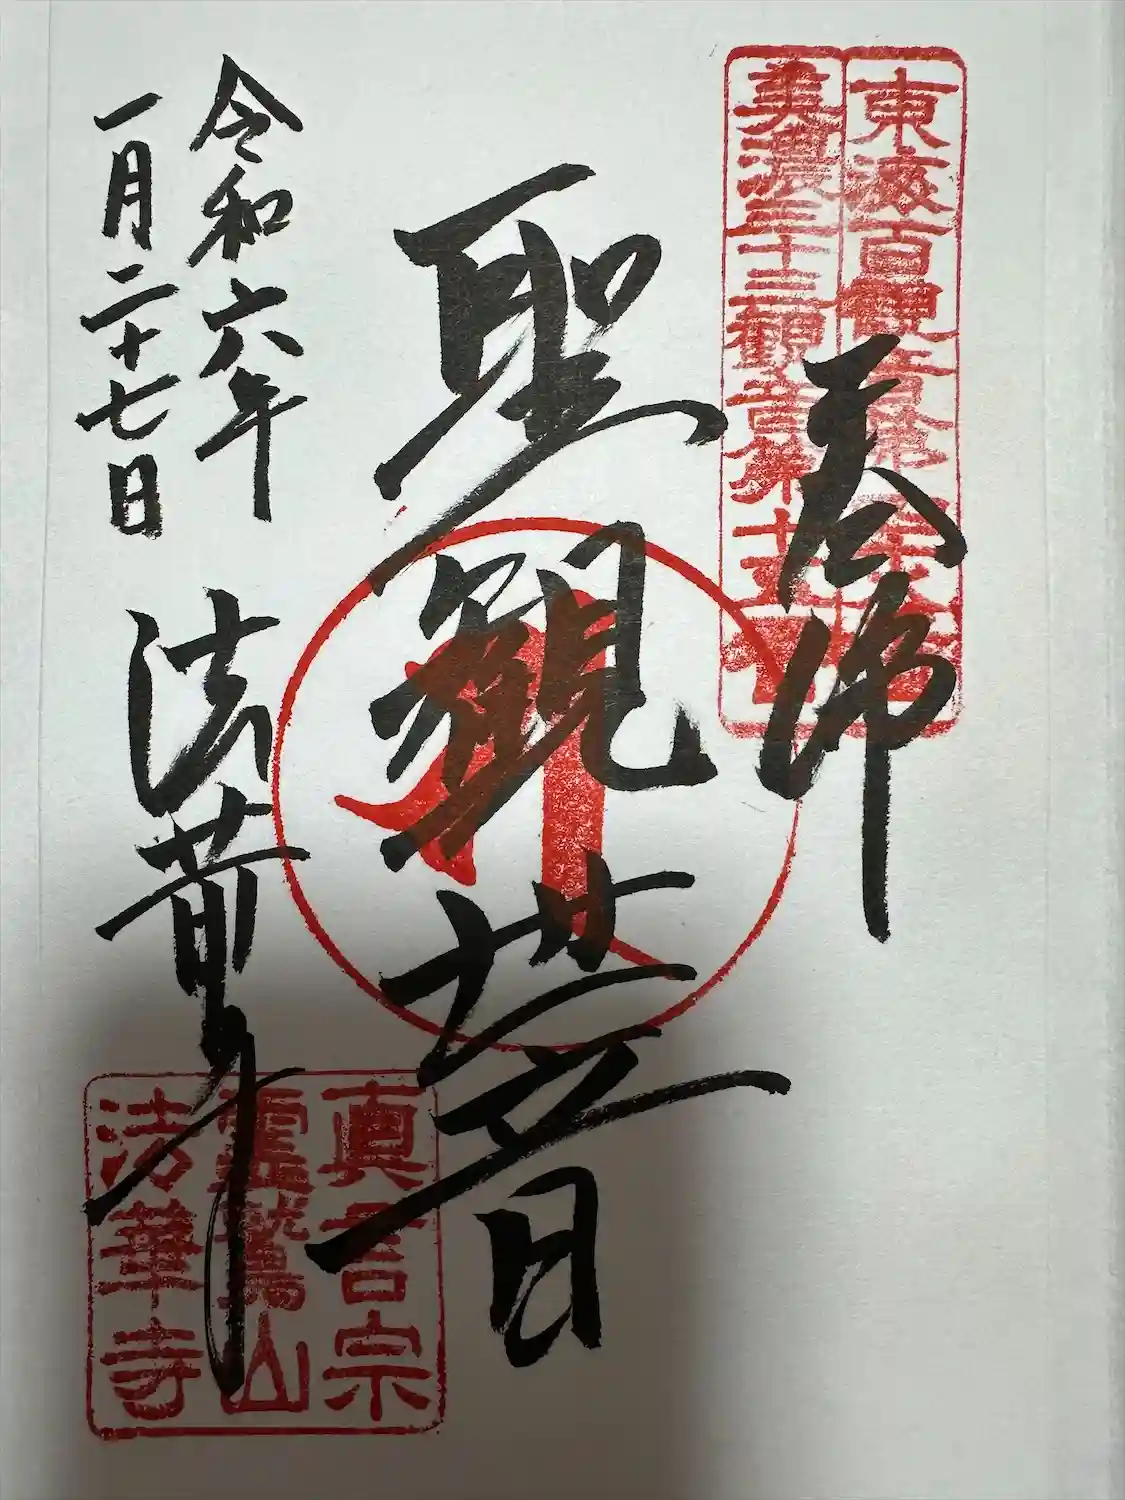 東海百観音第
美濃三十三観音第十五番
奉拝
聖観世音
令和六年
一月二十七日
法華寺
真言宗
霊鷲山
法華寺